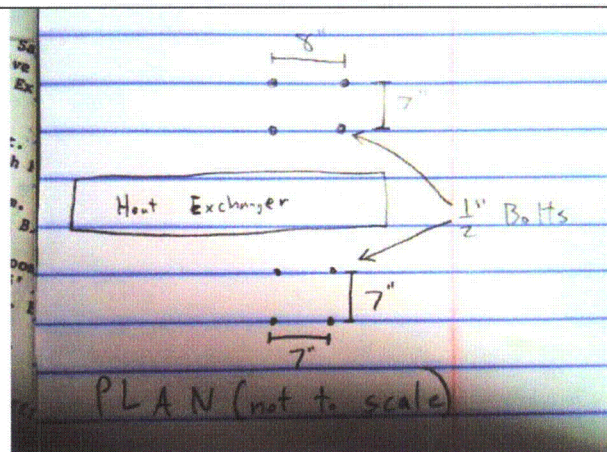 8"
7"
Heat Exchanger
1/2" Bolts
7"
7"
PLAN (not to scale)